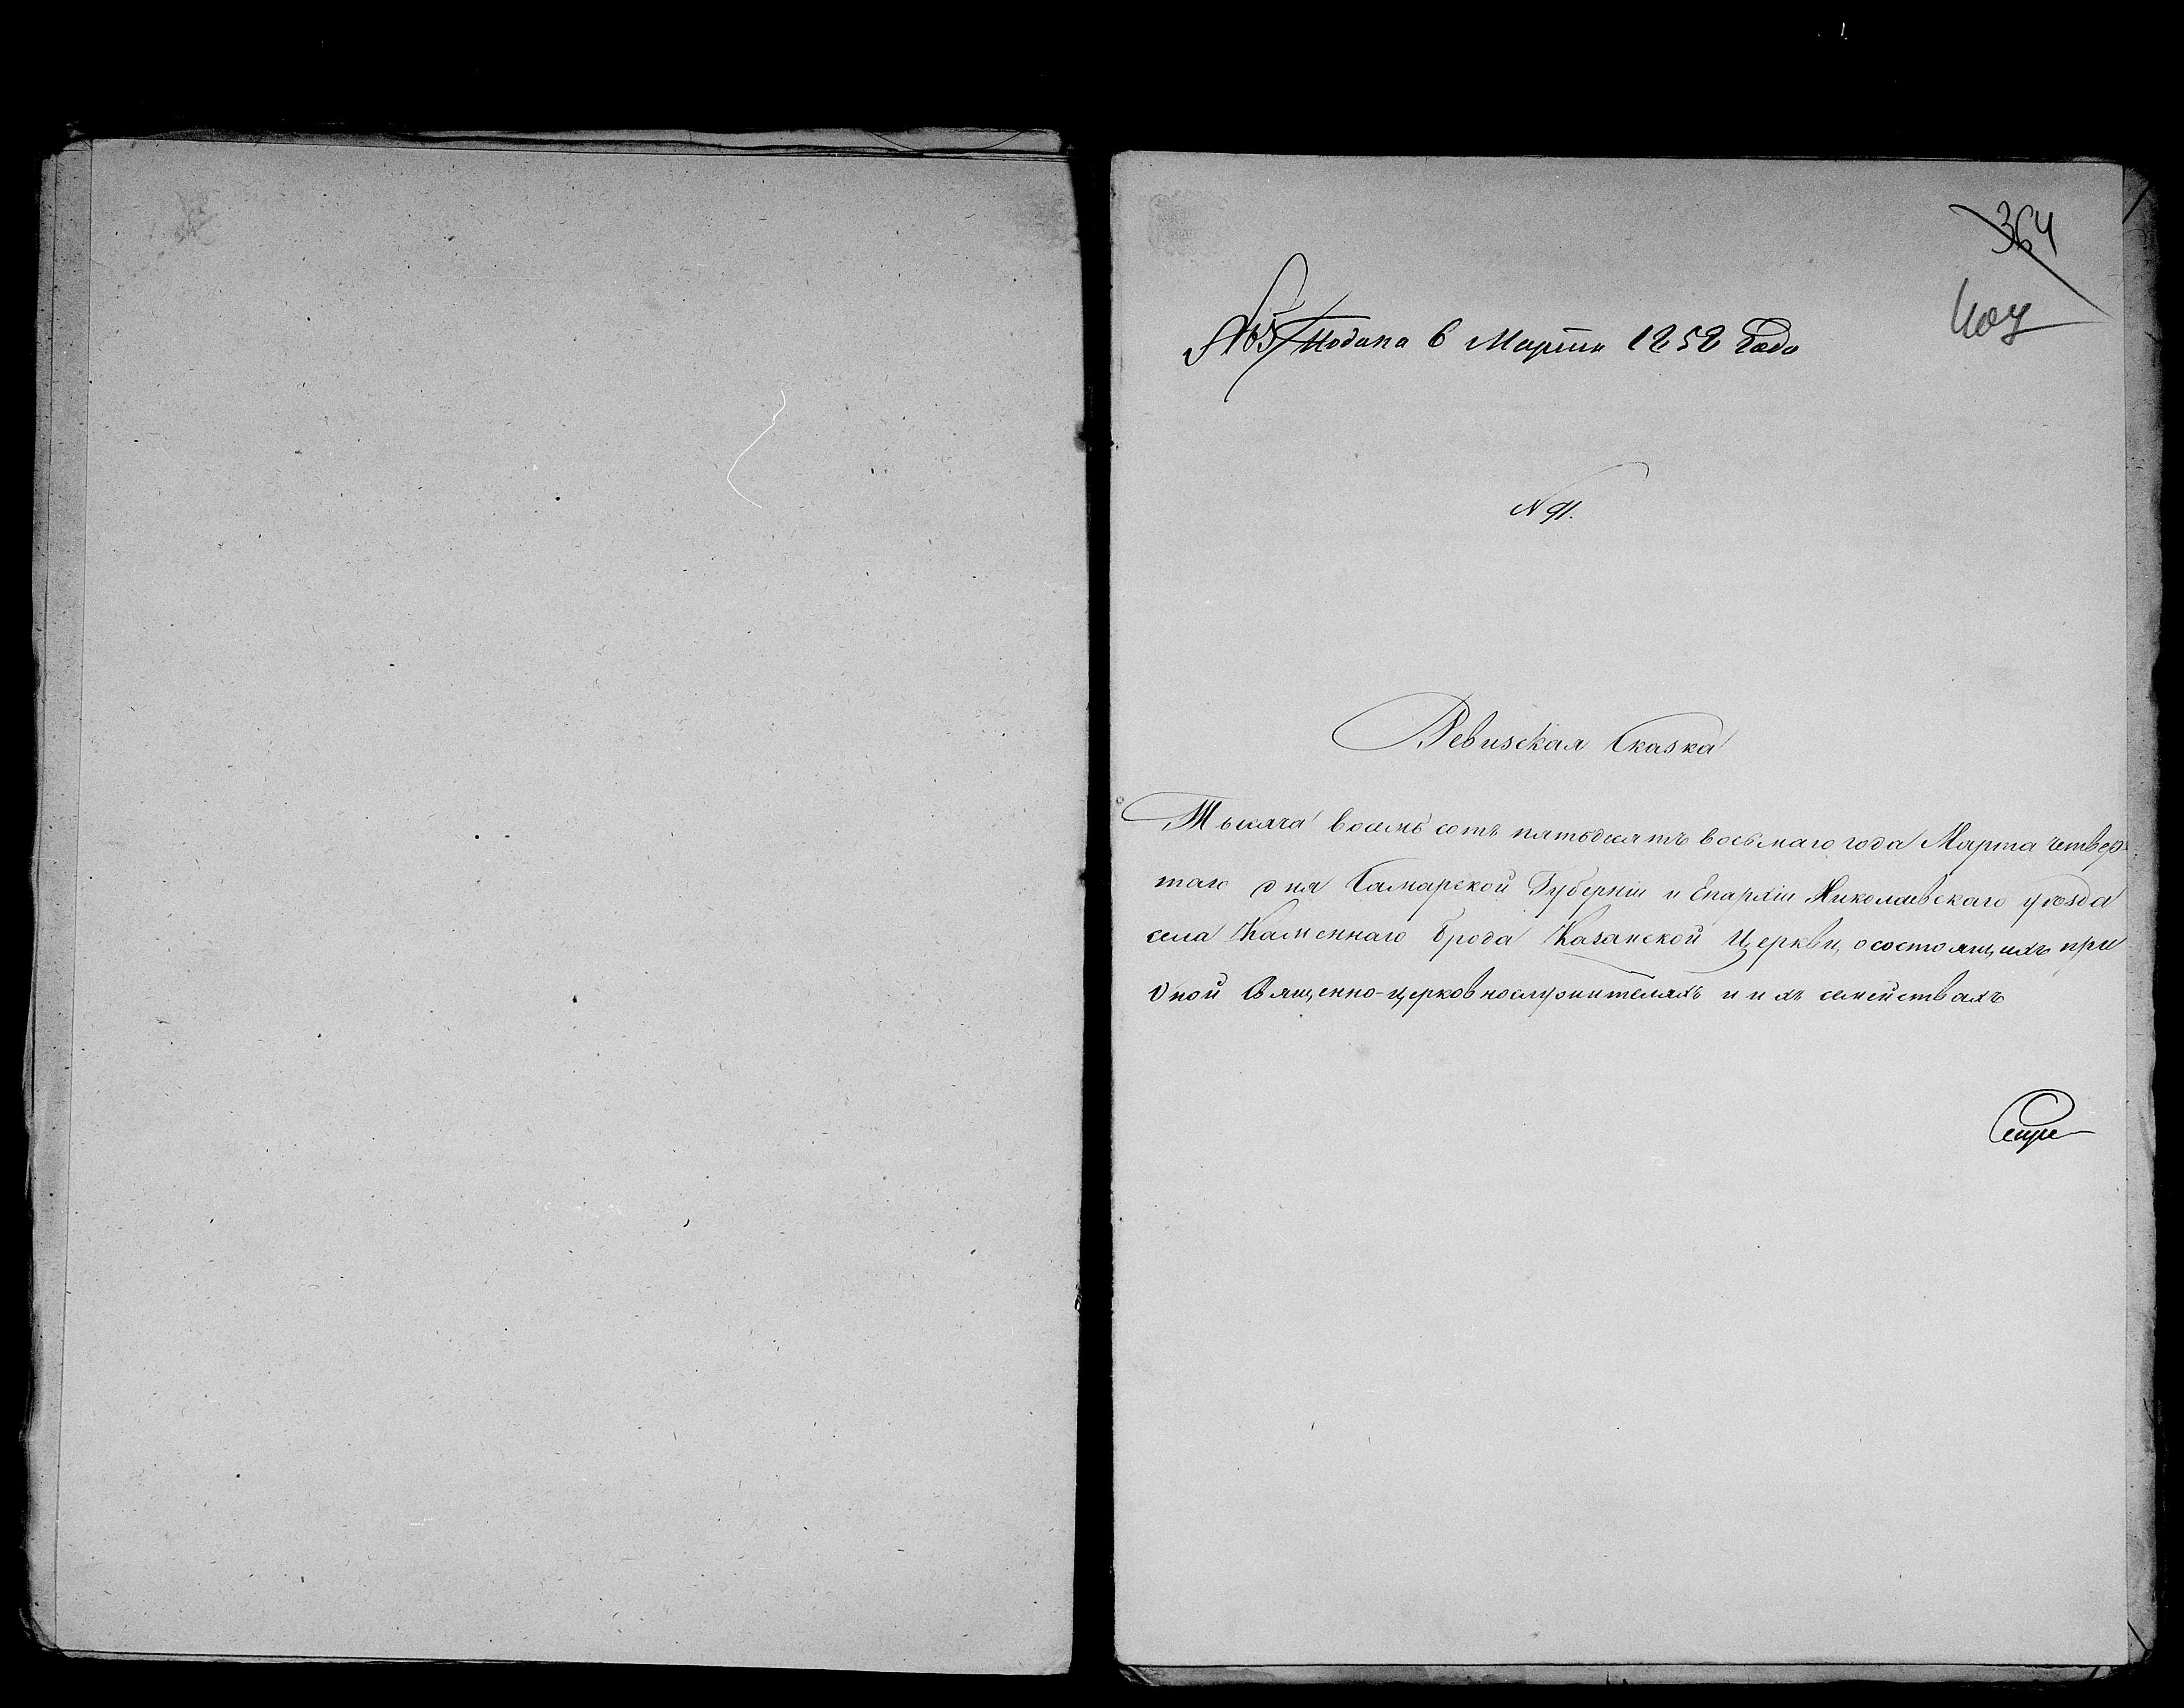 364
407
Подана 6 Марта 1858 Года
N 91.
Ревизская Сказка
Тысяча восемь сотъ пятьдесятъ восьмаго года Марта четвер-
таго дня Самарской Губерніи и Епархіи Николаевскаго уѣзда
села Каменнаго Брода Казанской Церкви, о состоящихъ при
оной Священно-церковнослужителяхъ и ихъ семействахъ